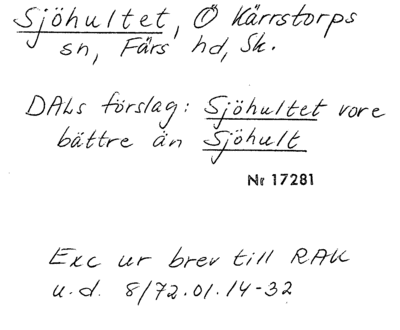 Sjöhultet, Ö Kärrstorps
sn, Färs hd, Sk.
DALs förslag: Sjöhultet vore
bättre än Sjöhult
Nr 17281
Exc ur brev till RAK
u.d. 8/72.01.14-32